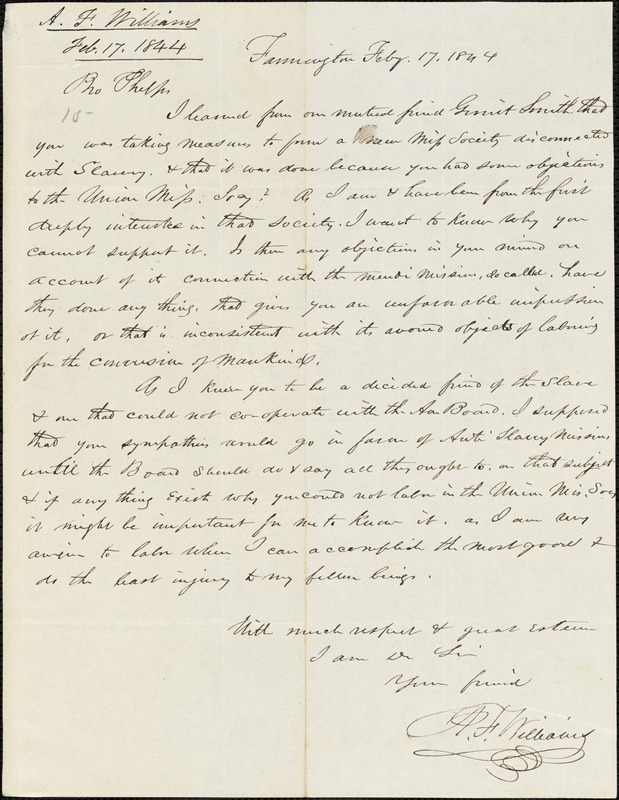 A. F. Williams
Feb. 17. 1844
Farmington Feby. 17. 1844
Bro Phelps
15-
I learned from our mutual friend Gerrit Smith that
you was taking measures to form a new Miss Society disconnected
with Slavery. & that it was done because you had some objections
to the Union Miss. Socy? As I am & have been from the first
deeply interested in that society. I want to know why you
cannot support it. Is there any objections in your mind on
account of its connection with the mendi mission, so called. have
they done any thing, that gives you an unfavorable impression
of it, or that is inconsistent with its avowed objects of laboring
for the conversion of Mankind.
As I knew you to be a decided friend of the Slave
& one that could not co-operate with the Am Board. I supposed
that your sympathies would go in favor of Anti Slavery Missions
until the Board should do & say all they ought to. on that subject
& if any thing Exist why you could not labor in the Union Mis. Socy
it might be important for me to know it. as I am very
anxious to labor where I can accomplish the most good &
do the least injury to my fellow beings.
With much respect & great Esteem
I am Dr Sir
Your friend
A. F. Williams